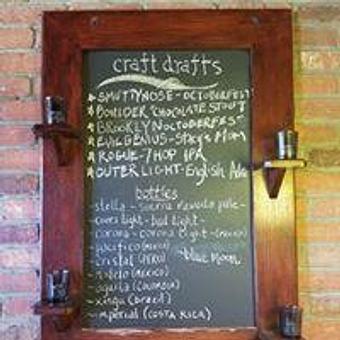 craft drafts
* SMUTTYNOSE - OCTOBERFEST
* BOULDER "CHOCOLATE STOUT
* BROOKLYN OCTOBERFEST
* EVIL GENIUS - Stacy's Mom
* ROGUE - 7 HOP IPA
* OUTER LIGHT - English Ale
bottles
- stella - sierra nevada pale -
- coors light - bud light -
- corona - corona light - (MEXICO)
- pacifico (MEXICO)
- cristal (PERU) - blue moon
- modelo (MEXICO)
- aguila (COLOMBIA)
- xingu (brazil)
- imperial (COSTA RICA)